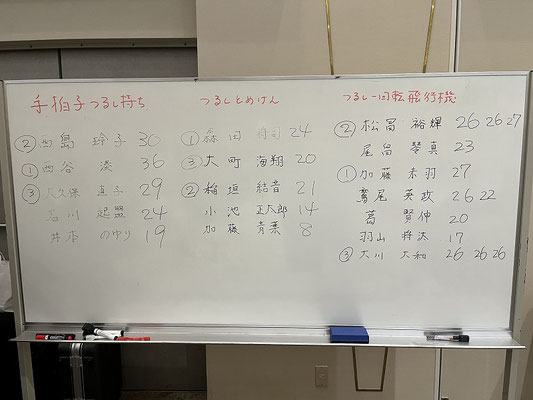 手拍子つるし持ち
② 西島 玲子 30
① 西谷 湊 36
③ 大久保 直子 29
石川 起盟 24
井本 のゆり 19
つるしとめけん
① 森田 将司 24
③ 大町 海翔 20
② 稲垣 結音 21
小池 正太郎 14
加藤 青葉 8
つるし一回転飛行機
② 松富 裕輝 26 26 27
尾畠 琴真 23
① 加藤 未羽 27
鷲尾 英政 26 22
葛 賢伸 20
羽山 将汰 17
③ 大川 大和 26 26 26